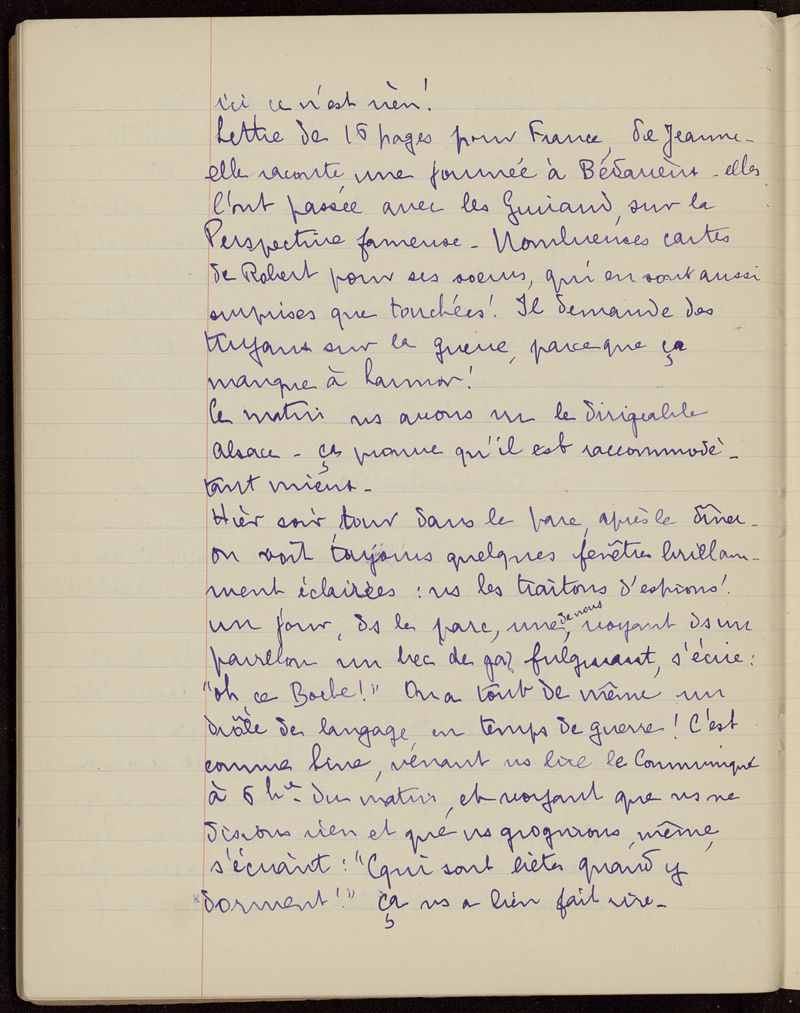 ici ce n'est rien!
Lettre de 16 pages pour France, de Jeanne -
elle raconte une journée à Bédarieux - elles
l'ont passée avec les Guiraud, sur la
Perspective fameuse - Nombreuses cartes
de Robert pour ses soeurs, qui en sont aussi
surprises que touchées! Il demande des
tuyaux sur la guerre, parceque ça
manque à Larmor!
Ce matin ns avons vu le dirigeable
Alsace - ça prouve qu'il est raccommodé -
tant mieux -
Hier soir, tour dans le parc, après le dîner -
on voit toujours quelques fenêtres brillam-
ment éclairées : ns les traitons d'espions!
un jour, ds le parc, une de nous, voyant ds un
pavillon un bec de gaz fulgurant, s'écrie :
"oh, ce Boche!" On a tout de même un
drôle de langage, en temps de guerre! C'est
comme Line, venant ns lire le Communiqué
à 6 hres du matin, et voyant que ns ne
disions rien et que ns grognions, même,
s'écriant : "Cqui sont bêtes quand y
dorment!" ça ns a bien fait rire -